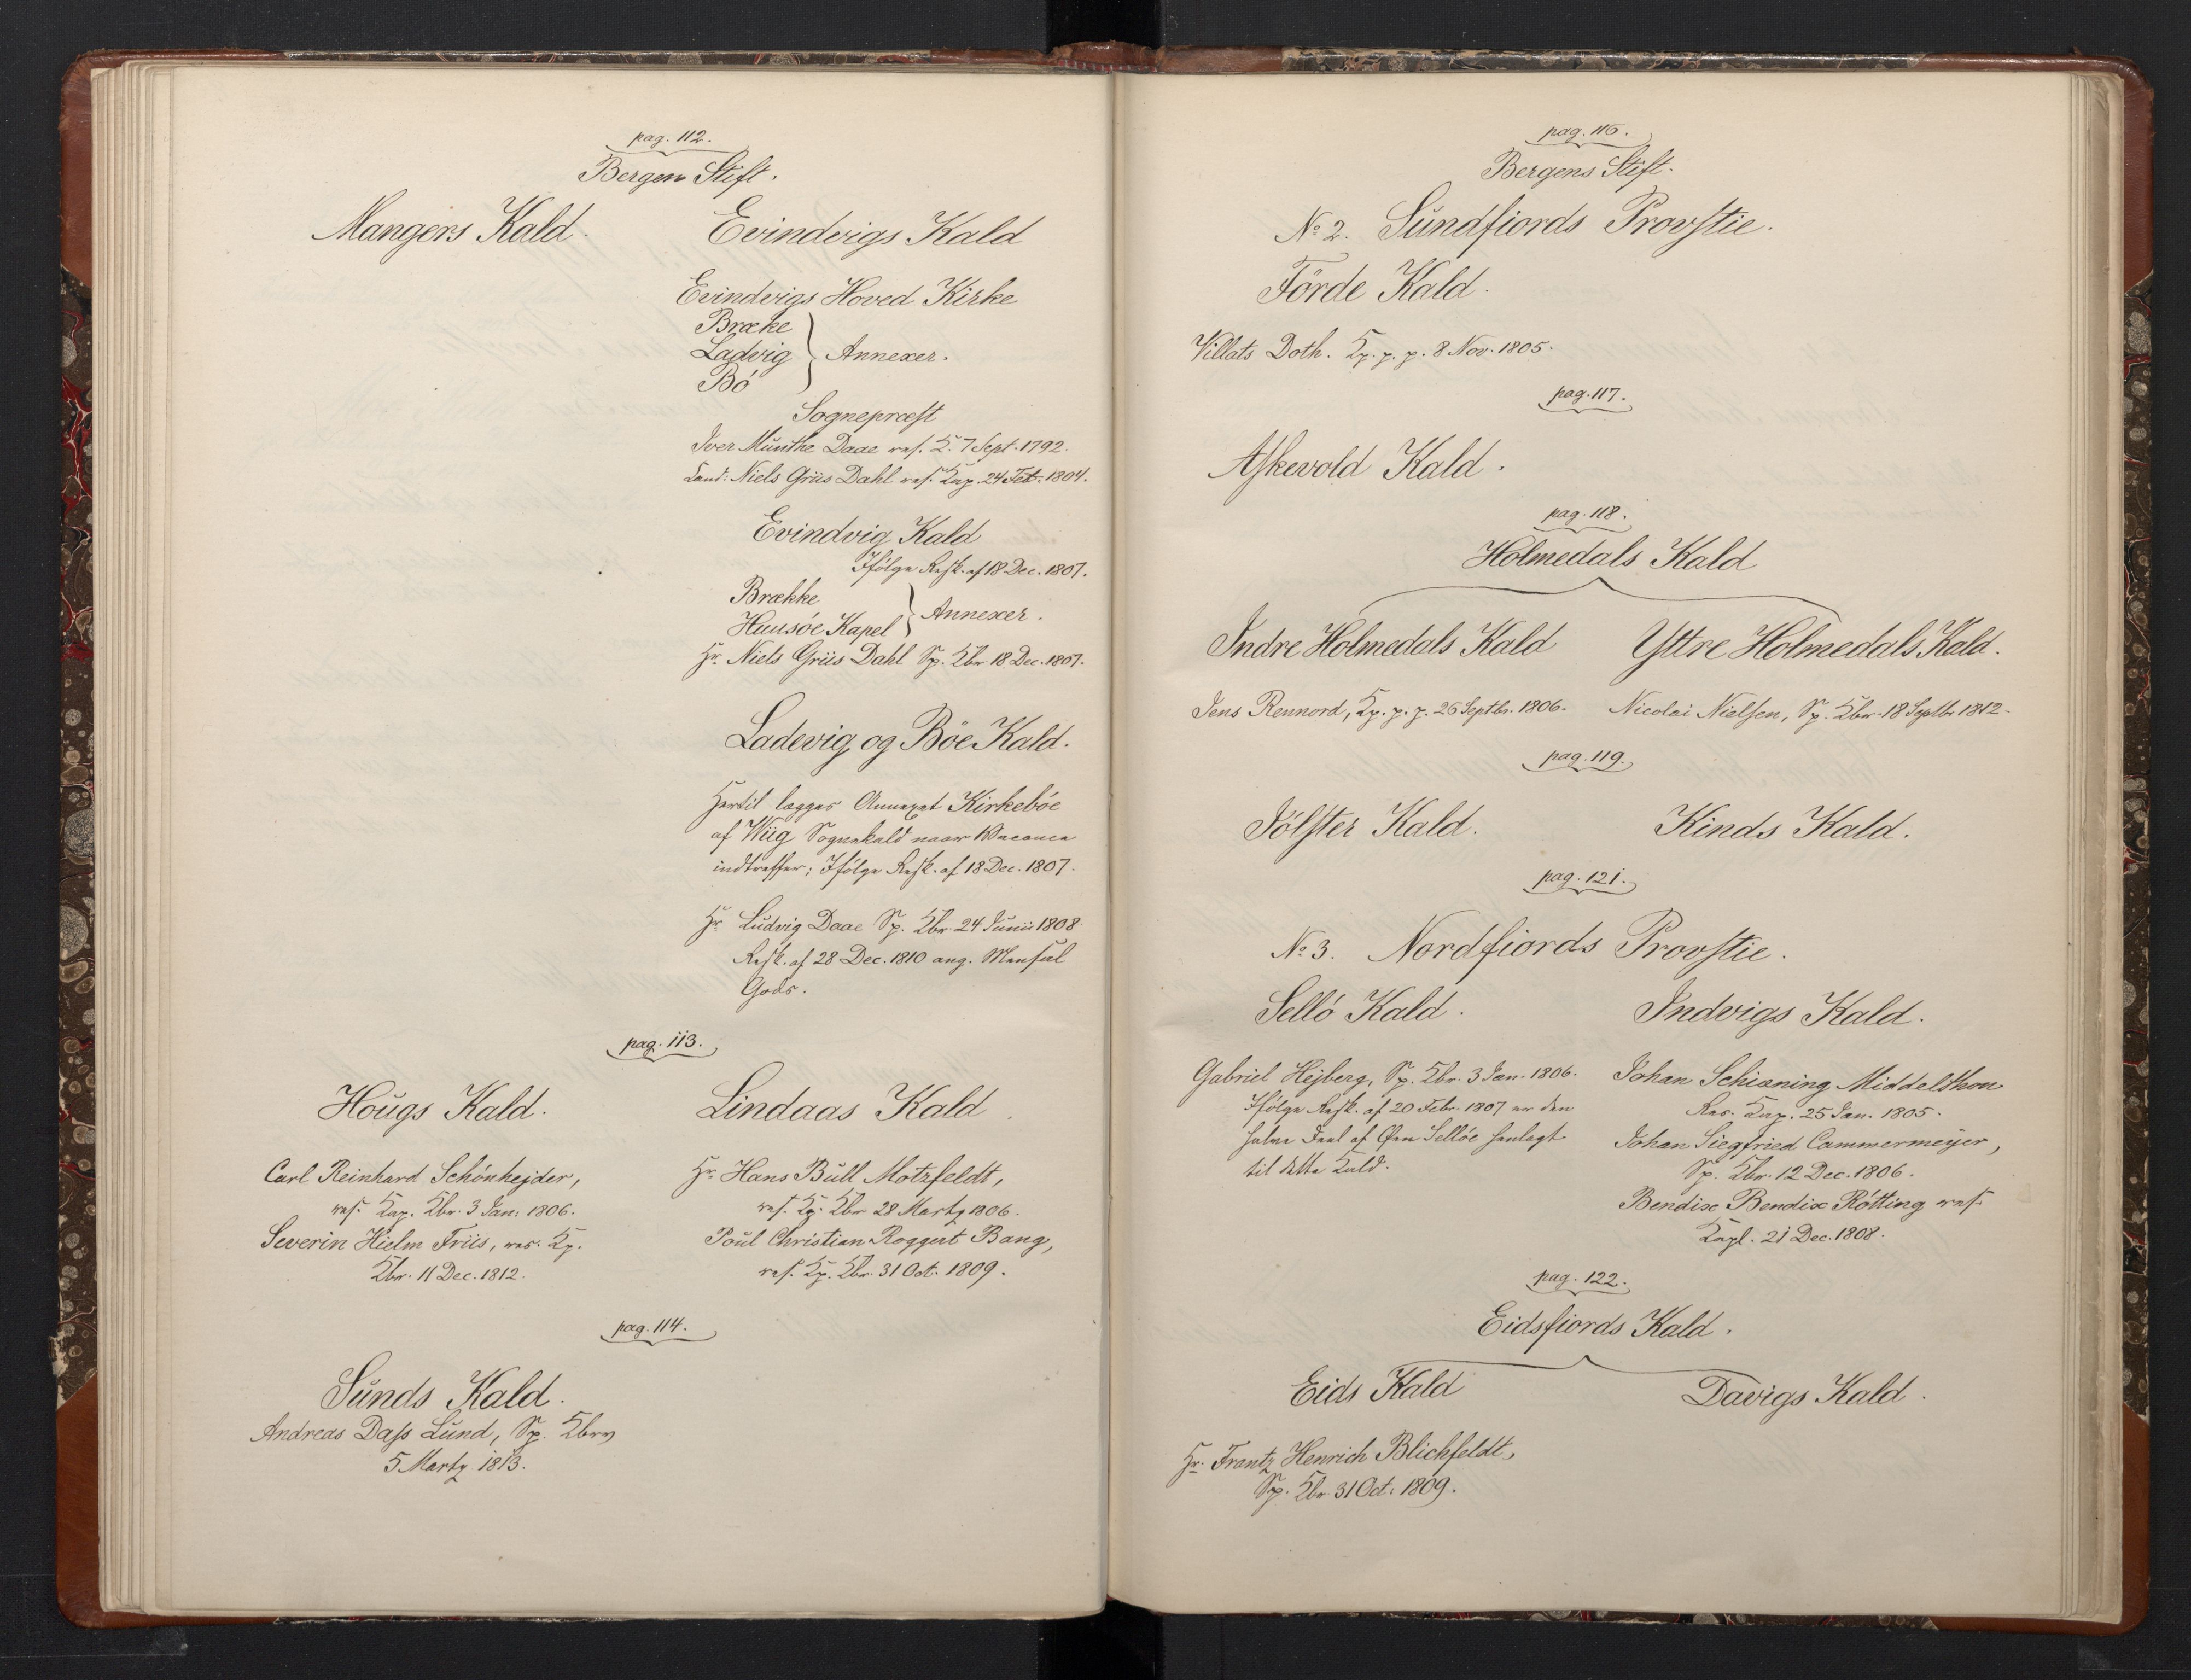 pag. 112.
Bergen Stift.
Mangers Kald.
Evindvigs Kald
Evindvigs Hoved Kirke
Bræke
Ladvig } Annexer.
Bö
Sognepræst
Iver Munthe Daae res. K. 7 Sept. 1792.
Cand: Niels Griis Dahl res. Kap. 24 Feb. 1804.
Evindvig Kald
Ifölge Resk. af 18 Dec. 1807.
Brække
Huusöe Kapel } Annexer.
Hr. Niels Griis Dahl Sp. Kbr 18 Dec. 1807.
Ladevig og Böe Kald.
Hertil lægges Annexet Kirkeböe
af Wiig Sognekald naar Vacance
indtreffer; Ifölge Resk. af 18 Dec. 1807.
Hr Ludvig Daae Sp. Kbr. 24 Junii 1808
Resk. af 28 Dec. 1810 ang. Mensal
Gods.
pag. 113.
Hougs Kald.
Carl Reinhard Schönhejder,
res. Kap. Kbr. 3 Jan: 1806.
Severin Hielm Friis, res. Kp.
Kbr. 11 Dec. 1812.
Lindaas Kald.
Hr Hans Bull Motzfeldt,
res. Kp. Kbr 28 Martz 1806.
Poul Christian Roggert Bang,
res. Kp. Kbr. 31 Oct. 1809.
pag. 114.
Sunds Kald.
Andreas Dass Lund, Sp. Kbrv
5 Martz 1813.
pag. 116.
Bergens Stift.
No 2. Sundfiords Provstie.
Förde Kald.
Villats Doth. Kp. p. p. 8 Nov. 1805.
pag. 117.
Askevold Kald.
pag. 118.
Holmedals Kald
Indre Holmedals Kald
Yttre Holmedals Kald.
Jens Rennord, Kp. p. p. 26 Septbr. 1806.
Nicolai Nielsen, Sp. Kbr. 18 Septbr 1812.
pag. 119.
Jölster Kald.
Kinds Kald.
pag. 121.
No 3. Nordfiords Provstie.
Sellö Kald.
Gabriel Hejberg, Sp. Kbr. 3 Jan. 1806.
Ifölge Resk. af 20 Febr. 1807 er den
halve Deel af Øen Sellöe henlagt
til dette Kald.
Indvigs Kald.
Johan Schiøning Middelthon
Res. Kap. 25 Jan. 1805.
Johan Siegfried Cammermeyer,
Sp. Kbr. 12 Dec. 1806.
Bendix Bendix Rötting res.
Kapl. 21 Dec. 1808.
pag. 122.
Eidsfiords Kald.
Eids Kald
Davigs Kald.
Hr. Frantz Henrich Blichfeldt,
Sp. Kbr. 31 Oct: 1809.